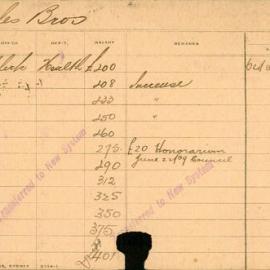 les Bros
OFFICE DEPT. SALARY REMARKS
Health £200
208 Increase
233 "
250 "
260
275 £20 Honorarium
June 22/09 Council
290
312
325
350
375
401
Transferred to New System
Transferred to New System